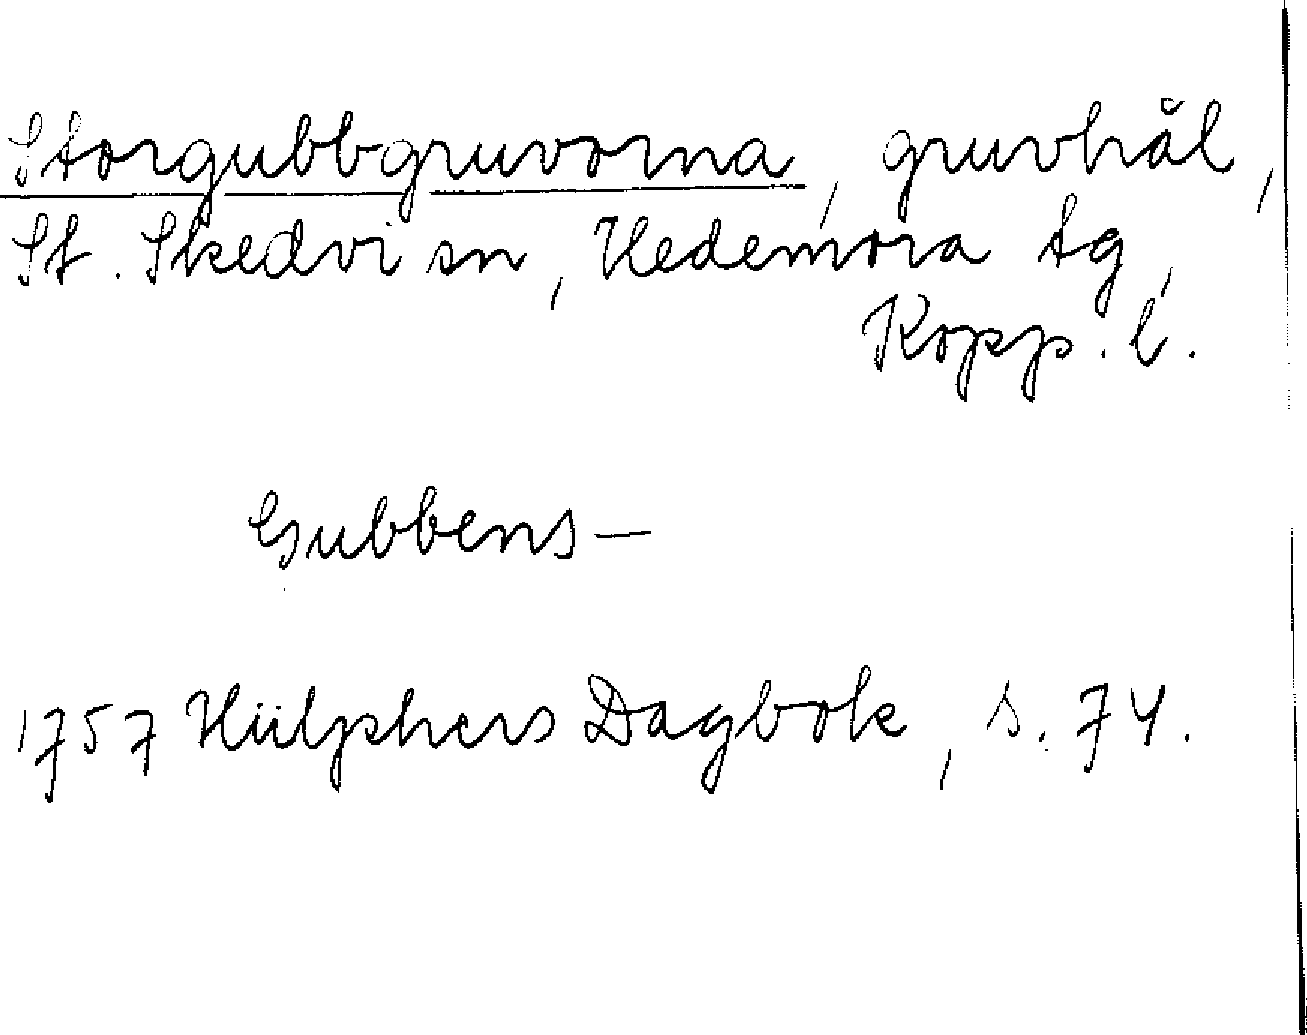 Storgubbgruvorna, gruvhål,
St. Skedvi sn, Hedemora tg,
Kopp. l.
Gubbens—
1757 Hülphers Dagbok, s. 74.